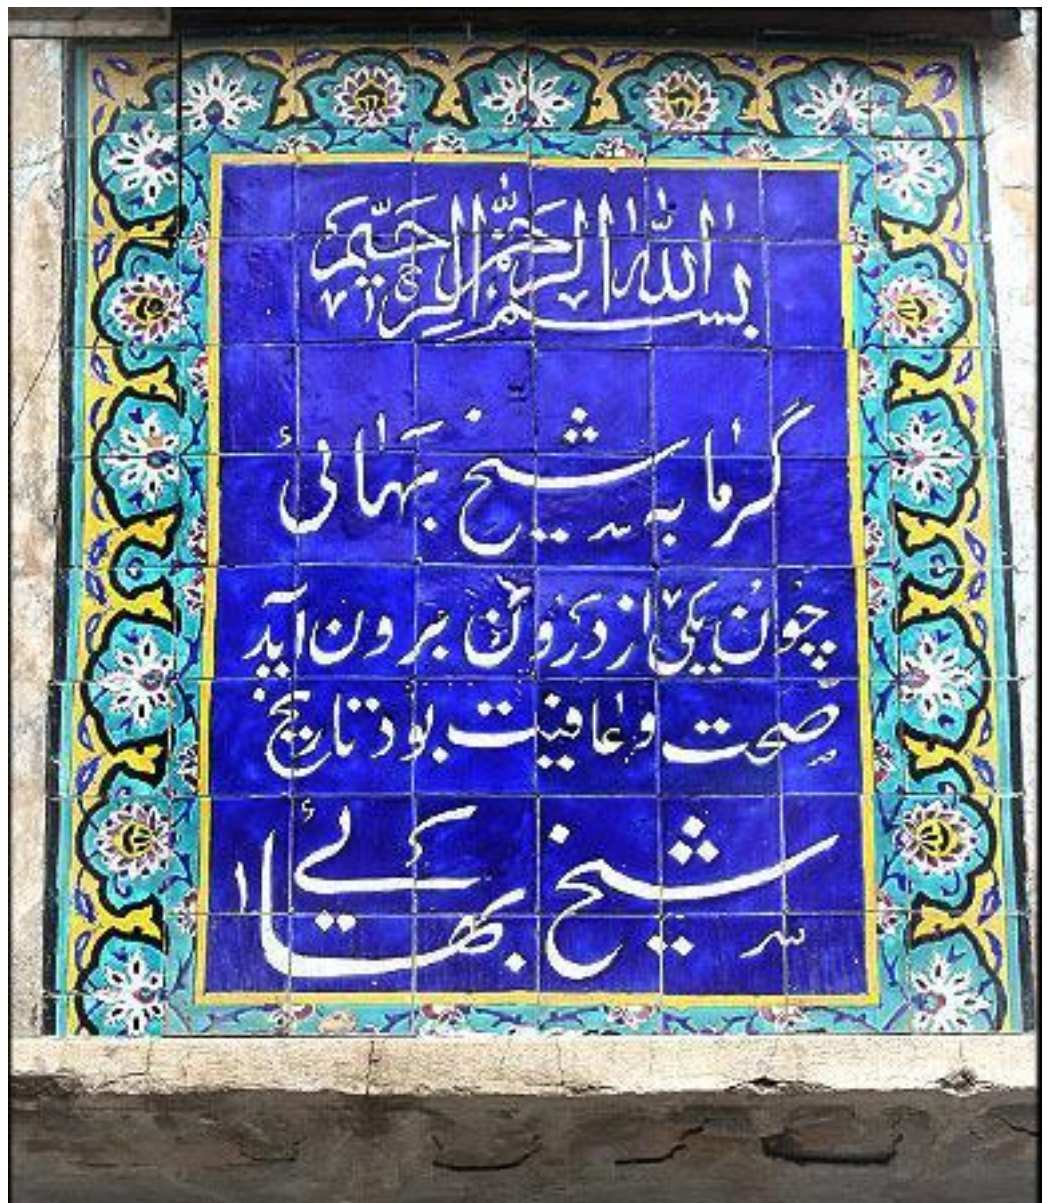 بسم الله الرحمن الرحیم
گرمابه شیخ بهائی
چون یکی از درون برون آید
صحت و عافیت بود تاریخ
شیخ بهائی